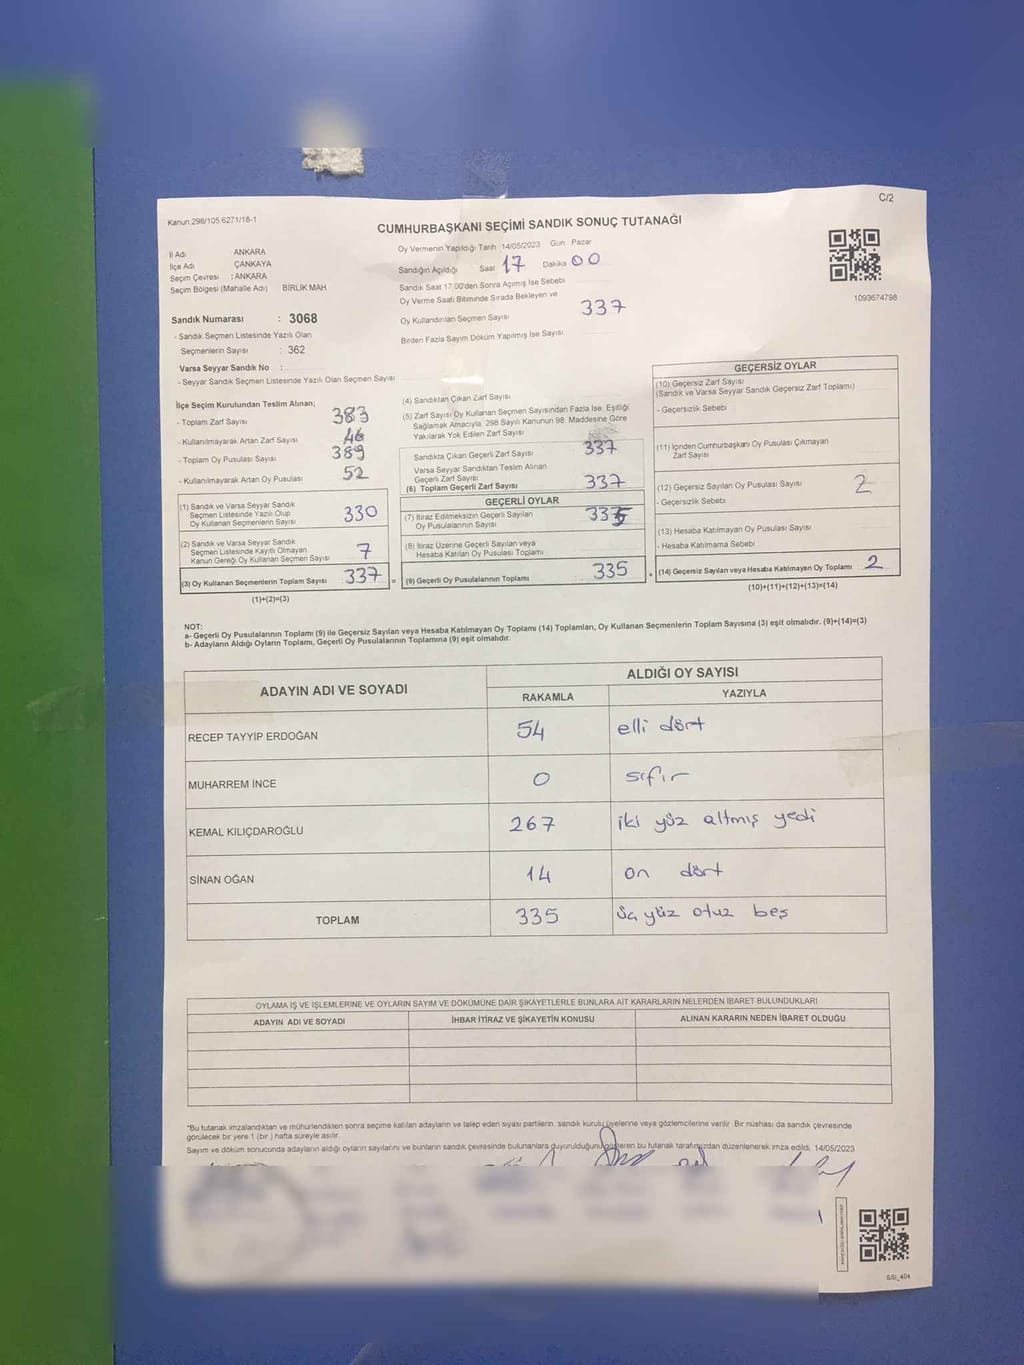 C/2
Kanun 298/105 6271/18-1
CUMHURBAŞKANI SEÇİMİ SANDIK SONUÇ TUTANAĞI
İl Adı ANKARA
İlçe Adı ÇANKAYA
Seçim Çevresi : ANKARA
Seçim Bölgesi (Mahalle Adı) BİRLİK MAH
Sandık Numarası : 3068
- Sandık Seçmen Listesinde Yazılı Olan
Seçmenlerin Sayısı : 362
Varsa Seyyar Sandık No :
- Seyyar Sandık Seçmen Listesinde Yazılı Olan Seçmen Sayısı
Oy Vermenin Yapıldığı Tarih 14/05/2023 Gün Pazar
Sandığın Açıldığı Saat 17 Dakika 00
Sandık Saat 17.00'den Sonra Açılmış İse Sebebi
Oy Verme Saati Bitiminde Sırada Bekleyen ve
Oy Kullandırılan Seçmen Sayısı 337
Birden Fazla Sayım Döküm Yapılmış İse Sayısı
1093674798
İlçe Seçim Kurulundan Teslim Alınan;
- Toplam Zarf Sayısı 383
- Kullanılmayarak Artan Zarf Sayısı 46
- Toplam Oy Pusulası Sayısı 389
- Kullanılmayarak Artan Oy Pusulası 52
(1) Sandık ve Varsa Seyyar Sandık
Seçmen Listesinde Yazılı Olup
Oy Kullanan Seçmenlerin Sayısı 330
(2) Sandık ve Varsa Seyyar Sandık
Seçmen Listesinde Kayıtlı Olmayan
Kanun Gereği Oy Kullanan Seçmen Sayısı 7
(3) Oy Kullanan Seçmenlerin Toplam Sayısı 337 =
(1)+(2)=(3)
(4) Sandıktan Çıkan Zarf Sayısı
(5) Zarf Sayısı Oy Kullanan Seçmen Sayısından Fazla İse, Eşitliği
Sağlamak Amacıyla, 298 Sayılı Kanunun 98. Maddesine Göre
Yakılarak Yok Edilen Zarf Sayısı
Sandıkta Çıkan Geçerli Zarf Sayısı 337
Varsa Seyyar Sandıktan Teslim Alınan
Geçerli Zarf Sayısı
(6) Toplam Geçerli Zarf Sayısı 337
GEÇERLİ OYLAR
(7) İtiraz Edilmeksizin Geçerli Sayılan
Oy Pusulalarının Sayısı 335
(8) İtiraz Üzerine Geçerli Sayılan veya
Hesaba Katılan Oy Pusulası Toplamı
(9) Geçerli Oy Pusulalarının Toplamı 335 +
GEÇERSİZ OYLAR
(10) Geçersiz Zarf Sayısı
(Sandık ve Varsa Seyyar Sandık Geçersiz Zarf Toplamı)
- Geçersizlik Sebebi
(11) İçinden Cumhurbaşkanı Oy Pusulası Çıkmayan
Zarf Sayısı
(12) Geçersiz Sayılan Oy Pusulası Sayısı 2
- Geçersizlik Sebebi
(13) Hesaba Katılmayan Oy Pusulası Sayısı
- Hesaba Katılmama Sebebi
(14) Geçersiz Sayılan veya Hesaba Katılmayan Oy Toplamı 2
(10)+(11)+(12)+(13)=(14)
NOT:
a- Geçerli Oy Pusulalarının Toplamı (9) ile Geçersiz Sayılan veya Hesaba Katılmayan Oy Toplamı (14) Toplamları, Oy Kullanan Seçmenlerin Toplam Sayısına (3) eşit olmalıdır. (9)+(14)=(3)
b- Adayların Aldığı Oyların Toplamı, Geçerli Oy Pusulalarının Toplamına (9) eşit olmalıdır.
ADAYIN ADI VE SOYADI ALDIĞI OY SAYISI
RAKAMLA YAZIYLA
RECEP TAYYİP ERDOĞAN 54 elli dört
MUHARREM İNCE 0 sıfır
KEMAL KILIÇDAROĞLU 267 iki yüz altmış yedi
SİNAN OĞAN 14 on dört
TOPLAM 335 üç yüz otuz beş
OYLAMA İŞ VE İŞLEMLERİNE VE OYLARIN SAYIM VE DÖKÜMÜNE DAİR ŞİKAYETLERLE BUNLARA AİT KARARLARIN NELERDEN İBARET BULUNDUKLARI
ADAYIN ADI VE SOYADI İHBAR İTİRAZ VE ŞİKAYETİN KONUSU ALINAN KARARIN NEDEN İBARET OLDUĞU
*Bu tutanak imzalandıktan ve mühürlendikten sonra seçime katılan adayların ve talep eden siyasi partilerin sandık kurulu üyelerine veya gözlemcilerine verilir. Bir nüshası da sandık çevresinde
görülecek bir yere 1 (bir) hafta süreyle asılır.
Sayım ve döküm sonucunda adayların aldığı oyların sayılarını ve bunların sandık çevresinde bulunanlara duyurulduğunu gösteren bu tutanak tarafımızdan düzenlenerek imza edildi. 14/05/2023
SSI_404